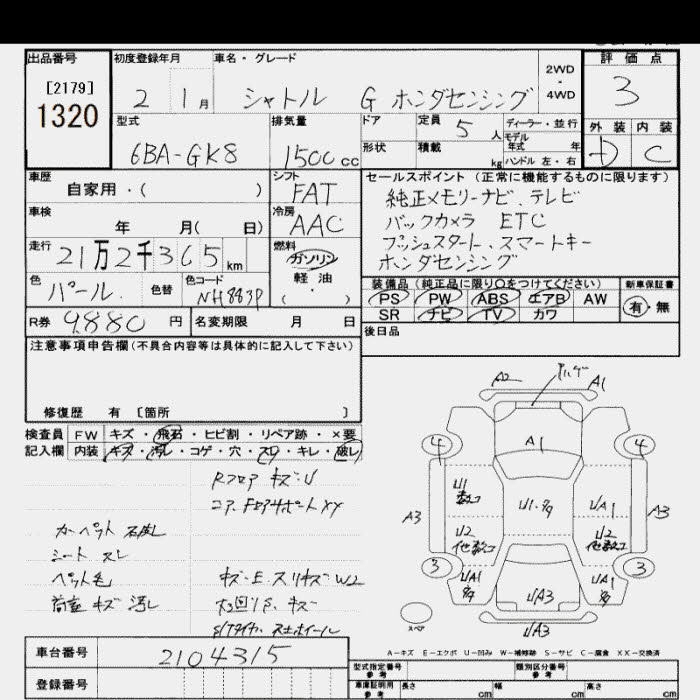 出品番号 初度登録年月 車名・グレード 2WD・4WD 評価点
[2179]
1320
2 1月 シャトル G ホンダセンシング 3
型式 排気量 ドア 定員 5人 ディーラー・並行 外装 内装
モデル年式 年
6BA-GK8 1500cc 形状 積載 kg ハンドル 左・右 D C
車歴 シフト セールスポイント(正常に機能するものに限ります)
自家用・( ) FAT 純正メモリーナビ、テレビ
車検 冷房 バックカメラ ETC
年 月( 日) AAC プッシュスタート、スマートキー
走行 燃料 ホンダセンシング
21万2千365km ガソリン
軽油
( ・ )
色 パール 色替 色コード NH883P
装備品(純正品に限り○をつけてください) 新車保証書
PS PW ABS エアB AW 有・無
SR ナビ TV カワ
R券 9,880円 名変期限 月 日 後日品
注意事項申告欄(不具合内容等は具体的に記入して下さい)
修復歴 有 [箇所 ]
検査員 FW キズ・飛石・ヒビ割・リペア跡・×要
記入欄 内装 キズ・汚レ・コゲ・穴・スレ・キレ・破レ
A2 A1
A1
4 4
U1 U1
A3 A3
U2 U2
3 3
UA1 UA1
U/A3
U/A3
スペア
Rフロア キズ・U
コア、F ロアサポートXX
シート スレ
ペット毛
キズ・E スリキズ W2
荷室 キズ 汚レ
A-キズ E-エクボ U-凹み W-補修跡 S-サビ C-腐食 XX-交換済
車台番号 2104315
登録番号
型式指定番号 参考 類別区分番号 参考
車庫証明用 参考 長さ cm 幅 cm 高さ cm